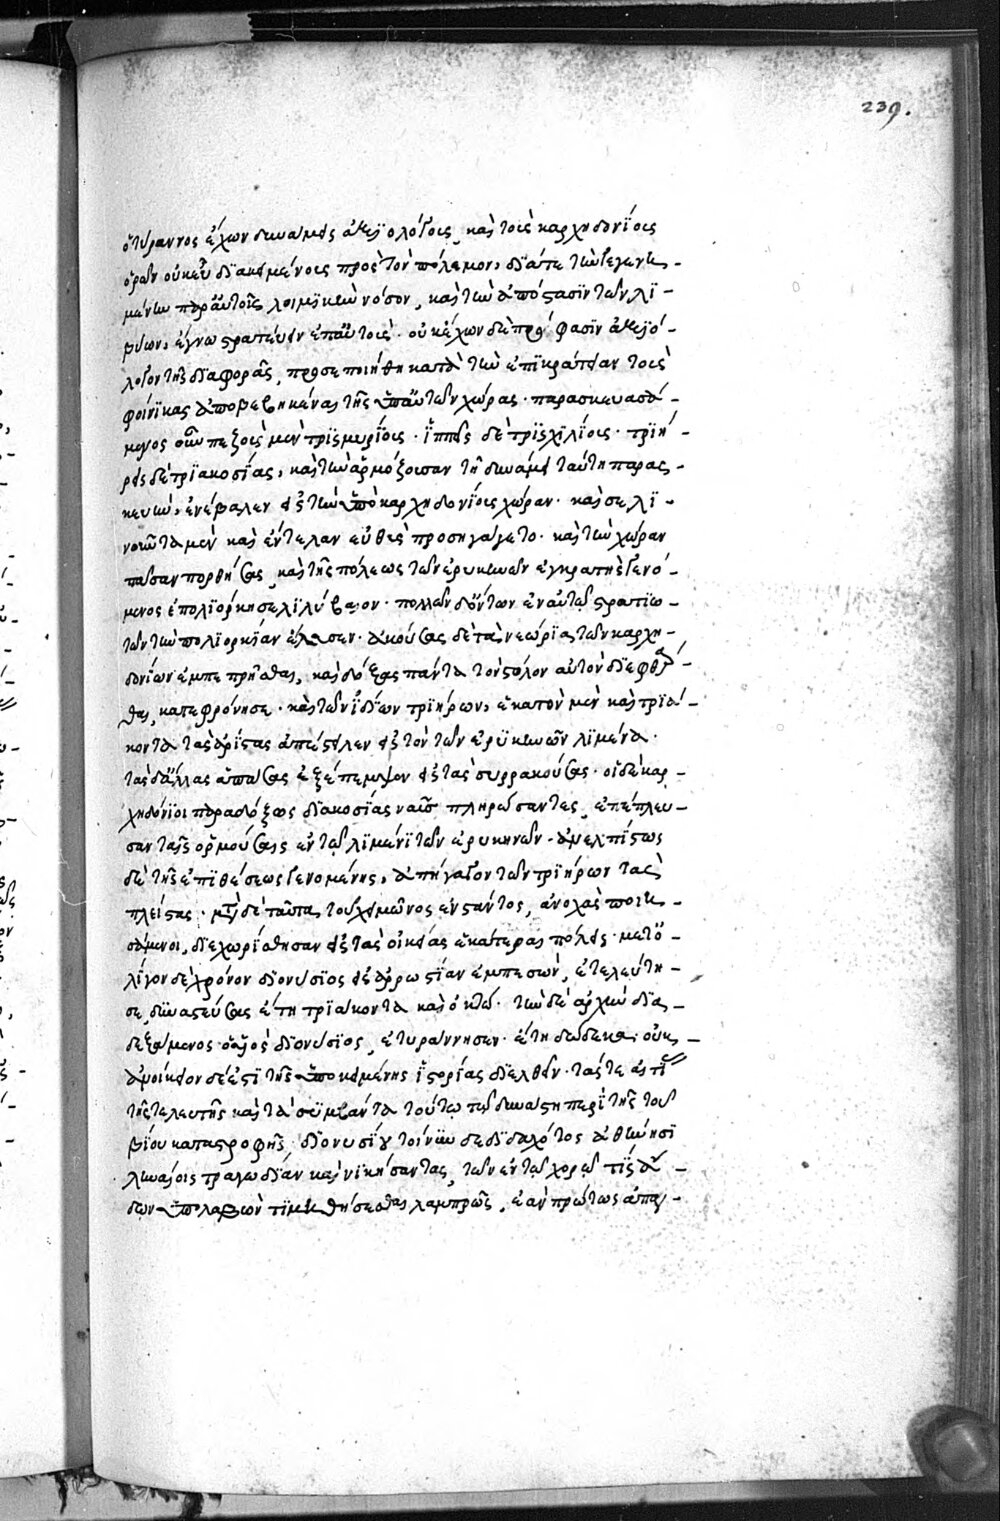 239.
ὁ τύραννος ἔχων δυνάμεις ἀξιολόγοις, καὶ τοὺς καρχηδονίοις
ὁρῶν οὐκ εὖ διακειμένοις πρὸς τὸν πόλεμον, διά τε τὴν γεγενη-
μένην παρ' αὐτοῖς λοιμικὴν νόσον, καὶ τὴν ἀπόστασιν τῶν λι-
βύων, ἔγνω στρατεύειν ἐπ' αὐτοὺς. οὐκ ἔχων δὲ πρόφασιν ἀξιό-
λογον τῆς διαφορᾶς, προσεποιήθη κατὰ τὴν ἐπικράτειαν τοὺς
φοίνικας ἀποβεβηκέναι τῆς ὑπ' αὐτῶν χώρας. παρασκευασά-
μενος οὖν πεζοὺς μὲν τρισμυρίοις. ἵππεῖς δὲ τρισχιλίοις. τριή-
ρεις δὲ τριακοσίας, καὶ τὴν ἁρμόζουσαν τῇ δυνάμει ταύτῃ παρασ-
κευὴν, ἐνέβαλεν εἰς τὴν ὑπὸ καρχηδονίοις χώραν. καὶ σελι-
νοῦντα μὲν καὶ ἔντελαν εὐθὺς προσηγάγετο. καὶ τὴν χώραν
πᾶσαν πορθήσας, καὶ τῆς πόλεως τῶν ἐρυκίνων ἐγκρατὴς γενό-
μενος ἐπολιόρκησε λιλύβαιον. πολλῶν δὲ ὄντων ἐν αὐτῷ στρατιω-
τῶν τὴν πολιορκίαν ἔλυσεν. ἀκούσας δὲ τὰ νεώρια τῶν καρχη-
δονίων ἐμπεπρῆσθαι, καὶ δόξας πάντα τὸν στόλον αὐτὸν διεφθάρ-
θαι, κατεφρόνησε. καὶ τῶν ἰδίων τριήρων, ἑκατὸν μὲν καὶ τριά-
κοντα τὰς ἀρίστας ἀπέστειλεν εἰς τὸν τῶν ἐρυκίνων λιμένα.
τὰς δ' ἄλλας ἁπάσας ἐξέπεμψεν εἰς τὰς συρρακούσας. οἱ δὲ καρ-
χηδόνιοι παραδόξως διακοσίας ναῦς πληρώσαντες, ἐπέπλευ-
σαν ταῖς ὁρμούσαις ἐν τῷ λιμένι τῶν ἐρυκηνῶν. ἀνελπίστως
δὲ τῆς ἐπιθέσεως γενομένης, ἀπήγαγον τῶν τριήρων τὰς
πλείστας. μετὰ δὲ ταῦτα τοῦ χειμῶνος ἐνστάντος, ἀνοχὰς ποιη-
σάμενοι, διεχωρίσθησαν εἰς τὰς οἰκείας ἑκάτεραι πόλεις. μετ' ὀ-
λίγον δὲ χρόνον διονύσιος εἰς ἀρρωστίαν ἐμπεσὼν, ἐτελεύτη-
σε, δυναστεύσας ἔτη τριάκοντα καὶ ὀκτώ. τὴν δὲ ἀρχὴν δια-
δεξάμενος ὁ υἱὸς διονύσιος, ἐτυράννησεν ἔτη δώδεκα. οὐκ
ἀνοίκειον δέ ἐστι τῆς ὑποκειμένης ἱστορίας διελθεῖν. τάς τε αἰτί-
τῆς τελευτῆς καὶ τὰ συμβάντα τούτῳ τῷ δυνάστῃ περὶ τῆς τοῦ
βίου καταστροφῆς, διονυσίου τοίνυν δεδιδαχότος ἀθήνησι
ληναίοις τραγῳδίαν καὶ νικήσαντας, τῶν ἐν τῷ χορῷ τὶς ᾀ-
δων ὑπολαβὼν τιμηθήσεσθαι λαμπρῶς, ἐὰν πρῶτος ἀπαγ-